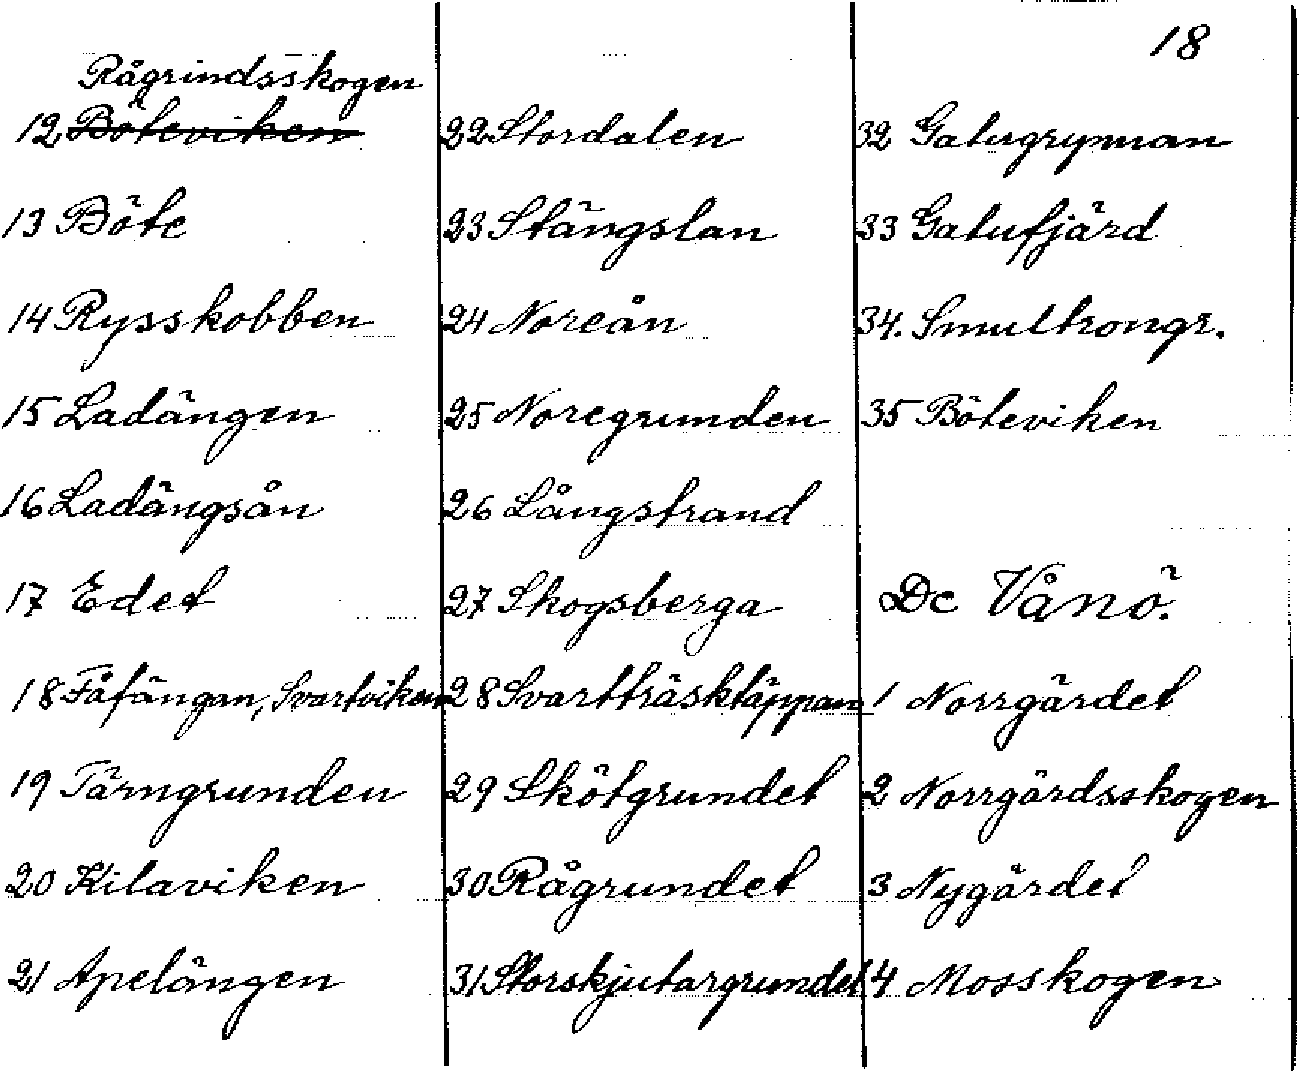 18
Rågrindsskogen
12 Böteviken
13 Böte
14 Rysskobben
15 Ladängen
16 Ladängsån
17 Edet
18 Fåfängan, Svartviken
19 Tärngrunden
20 Kilaviken
21 Apelängen
22 Stordalen
23 Stängslan
24 Noreån
25 Noregrunden
26 Långstrand
27 Skogsberga
28 Svartträsktäppan
29 Skötgrundet
30 Rågrundet
31 Storskjutargrundet
32 Gatugrynnan
33 Gatufjärd
34. Smultrongr.
35 Böteviken
De Vånö.
1 Norrgärdet
2 Norrgärdsskogen
3 Nygärdet
4 Mosskogen